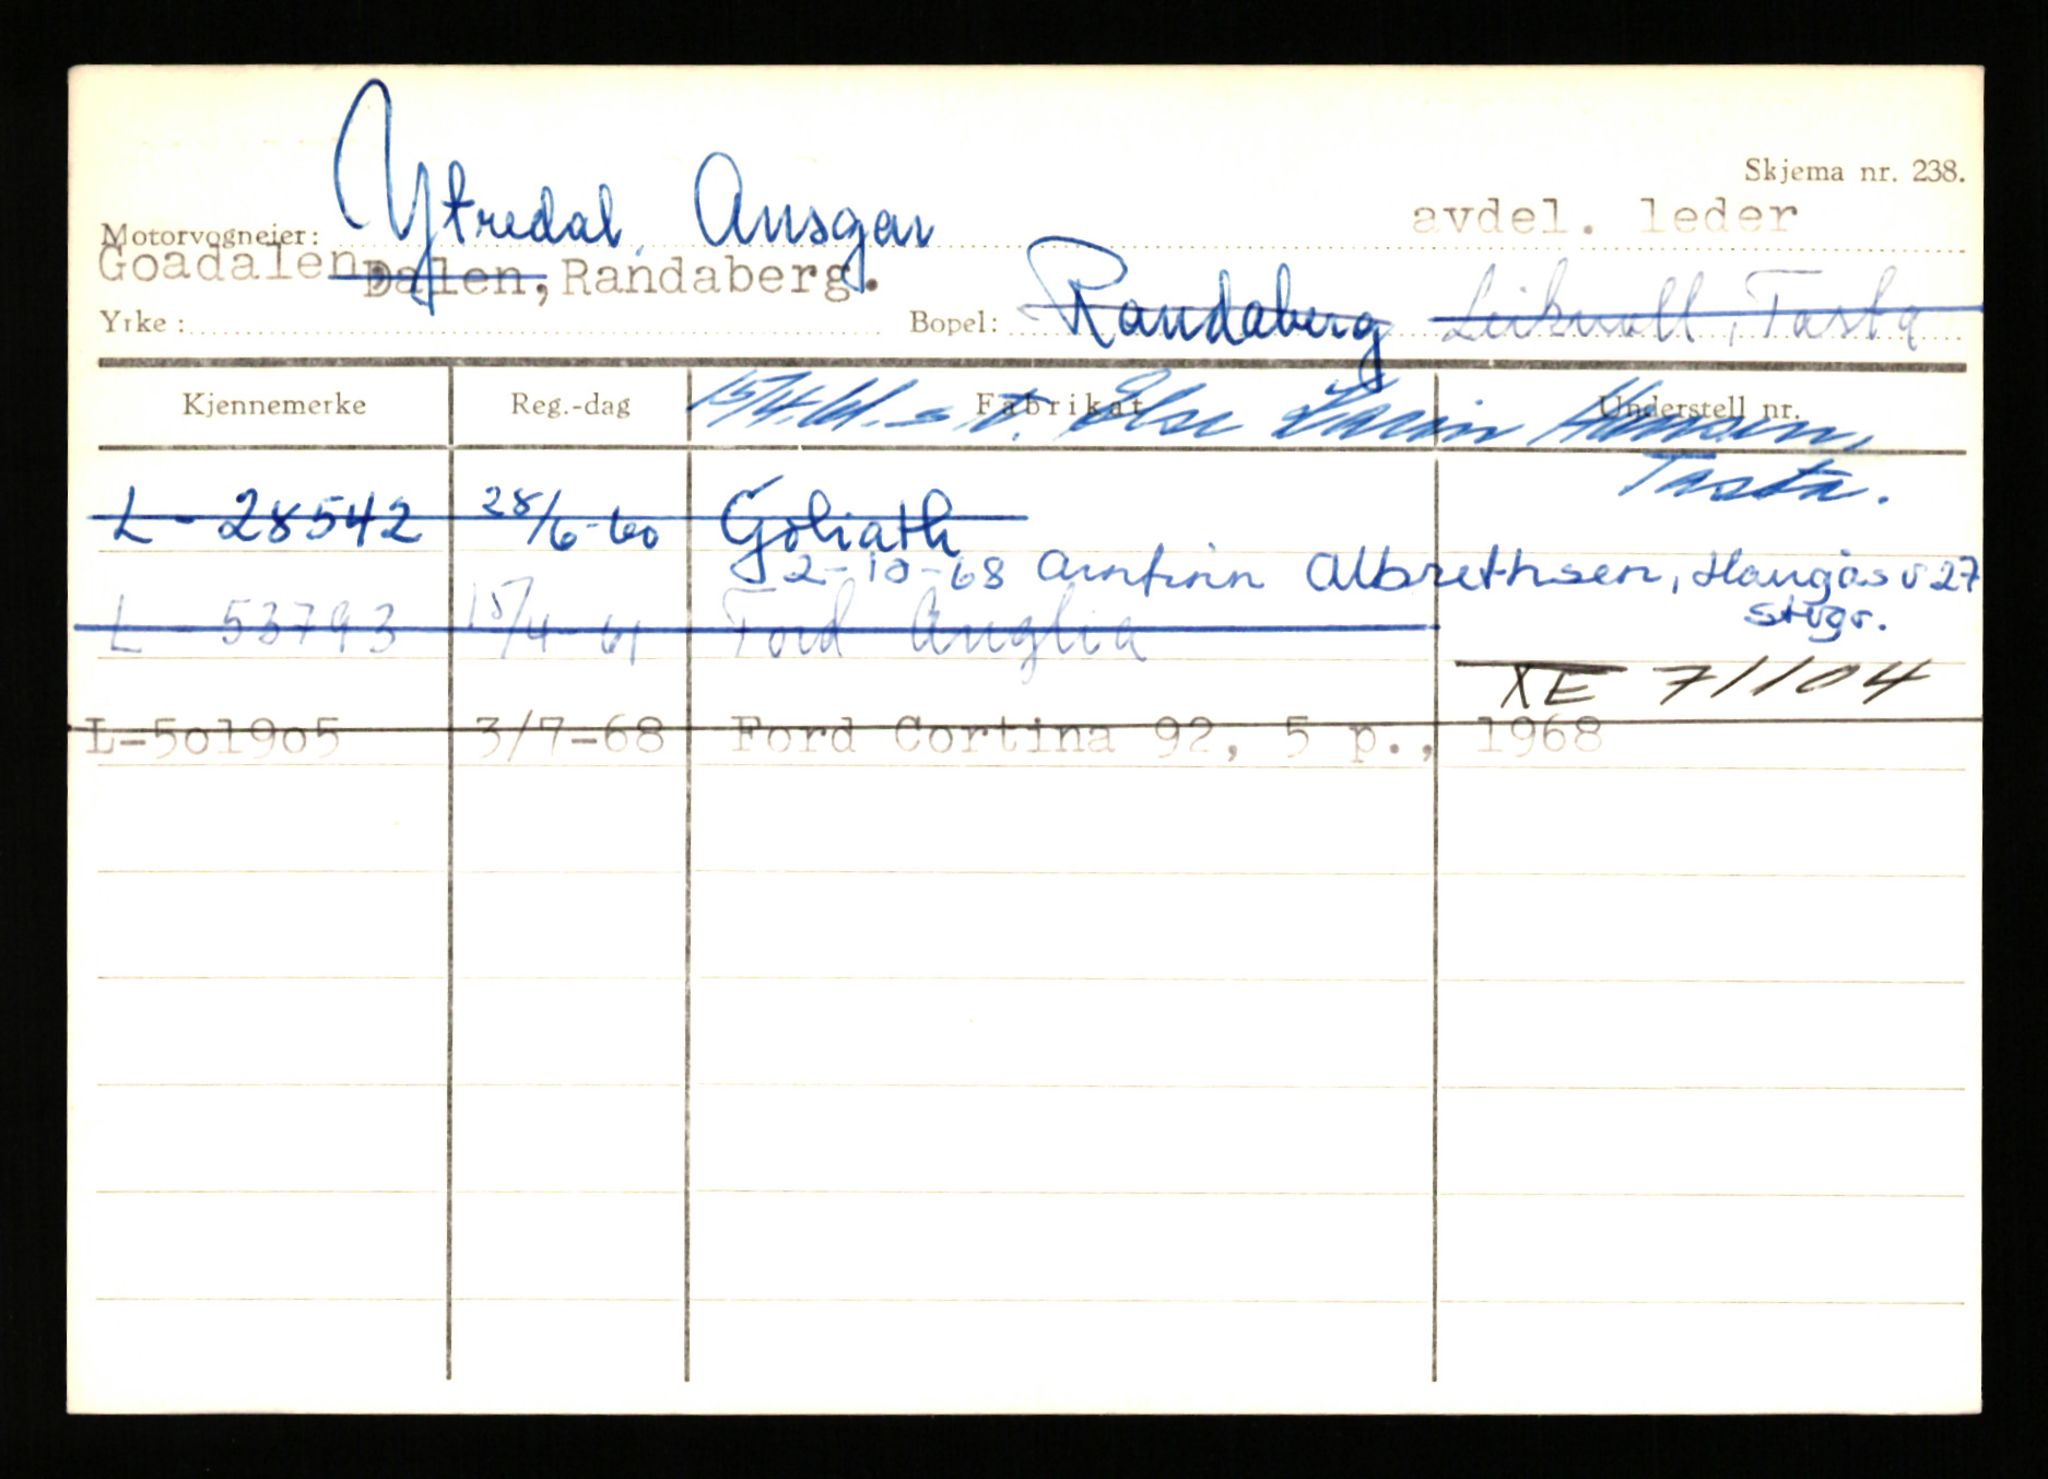 Skjema nr. 238.
Motorvogneier: Ytredal, Ansgar avdel. leder
Goadalen, Dalen, Randaberg.
Yrke: Bopel: Randaberg Tasta
Kjennemerke Reg.-dag Fabrikat Understell nr.
15/4.61. s.t. Else Hansen,
Tasta.
L - 28542 28/6-60 Goliath
2-10-68 Arnfinn Albrethsen, Haugåsv 27
stvgr.
L 53793 15/4-61 Ford Anglia
XE 71104
L-501905 3/7-68 Ford Cortina 92, 5 p., 1968